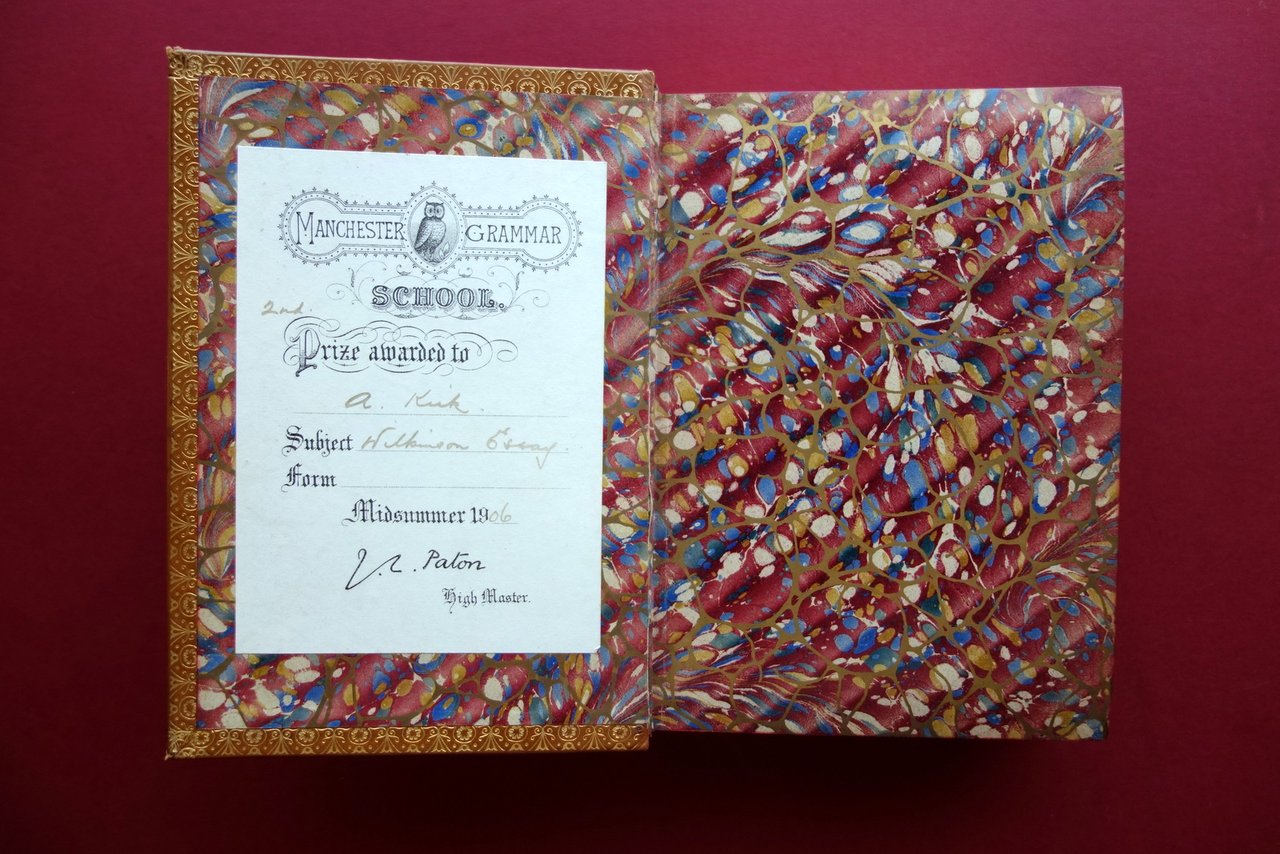 MANCHESTER GRAMMAR
SCHOOL.
2nd.
Prize awarded to
A. Kirk.
Subject Wilkinson Essay.
Form
Midsummer 1906
J. L. Paton
High Master.